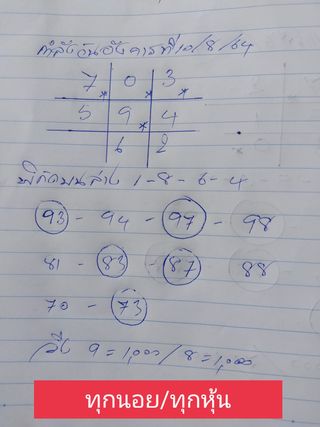 กำลังวันอังคารที่ 10/8/64
7 0 3
5 9 4
6 2
พิกัดบนล่าง 1-8-6-4
93 - 94 - 97 - 98
81 - 83 - 87 88
70 - 73
9 = 1,000 / 8 = 1,000
ทุกนอย/ทุกหุ้น